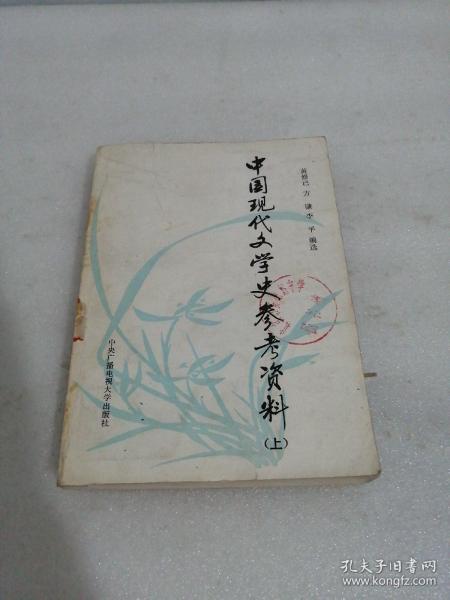 黄修己 方谦 李平 编选
中国现代文学史参考资料
(上)
中央广播电视大学出版社
孔夫子旧书网
www.kongfz.com